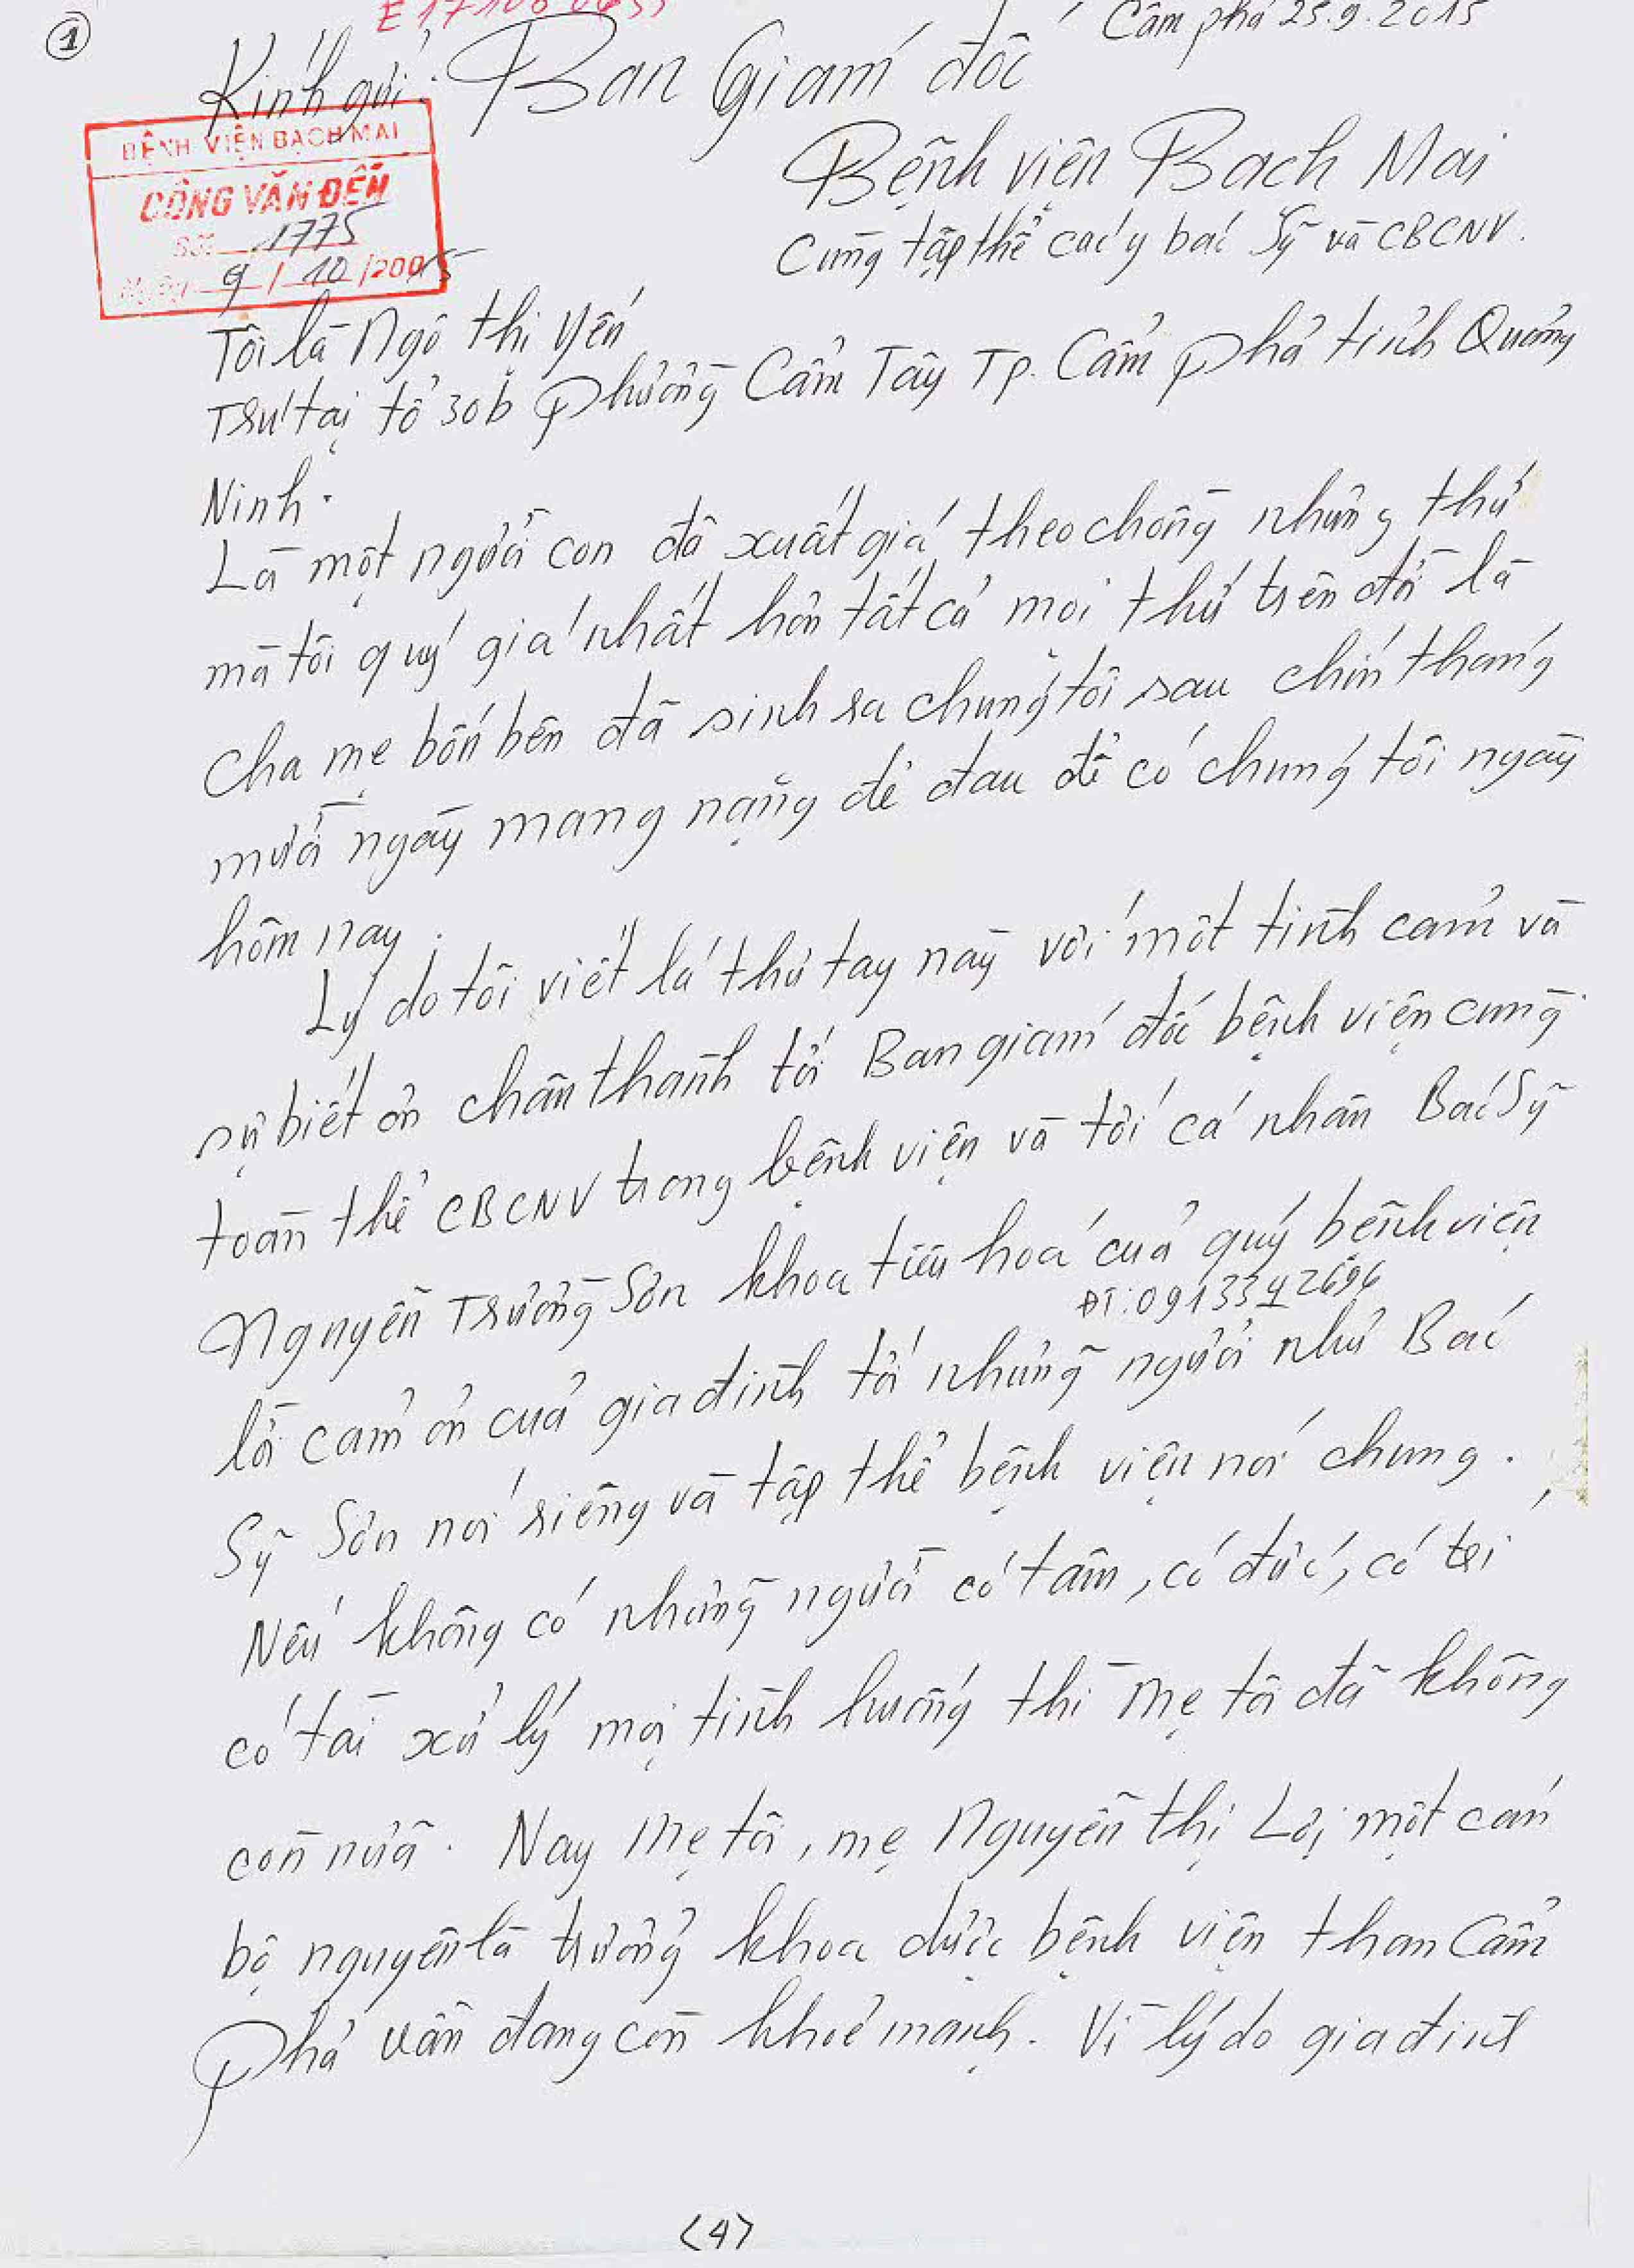 ①
Cẩm phả 25.9.2015
Kính gửi: Ban Giám đốc
BỆNH VIỆN BẠCH MAI
CÔNG VĂN ĐẾN
Số: 1775
Ngày 9 / 10 /2005
Bệnh viện Bạch Mai
Cùng tập thể các y bác Sỹ và CBCNV.
Tôi là Ngô thị Yến
Trú tại tổ 30b phường Cẩm Tây Tp. Cẩm phả tỉnh Quảng
Ninh.
Là một người con đã xuất giá theo chồng những thứ
mà tôi quý giá nhất hơn tất cả mọi thứ trên đời là
cha mẹ bốn bên đã sinh ra chúng tôi sau chín tháng
mười ngày mang nặng đẻ đau để có chúng tôi ngày
hôm nay.
Lý do tôi viết lá thư tay này với một tình cảm và
sự biết ơn chân thành tới Ban giám đốc bệnh viện cùng
toàn thể CBCNV trong bệnh viện và tới cá nhân Bác Sỹ
Nguyễn Trường Sơn khoa tiêu hoá của quý bệnh viện
ĐT:0913342696
lời cảm ơn của gia đình tới những người như Bác
Sỹ Sơn nói riêng và tập thể bệnh viện nói chung.
Nếu không có những người có tâm, có đức, có trí
có tài xử lý mọi tình huống thì mẹ tôi đã không
còn nữa. Nay mẹ tôi, mẹ Nguyễn thị Lợi một cán
bộ nguyên là trưởng khoa dược bệnh viện than Cẩm
Phả vẫn đang còn khoẻ mạnh. Vì lý do gia đình
(4)